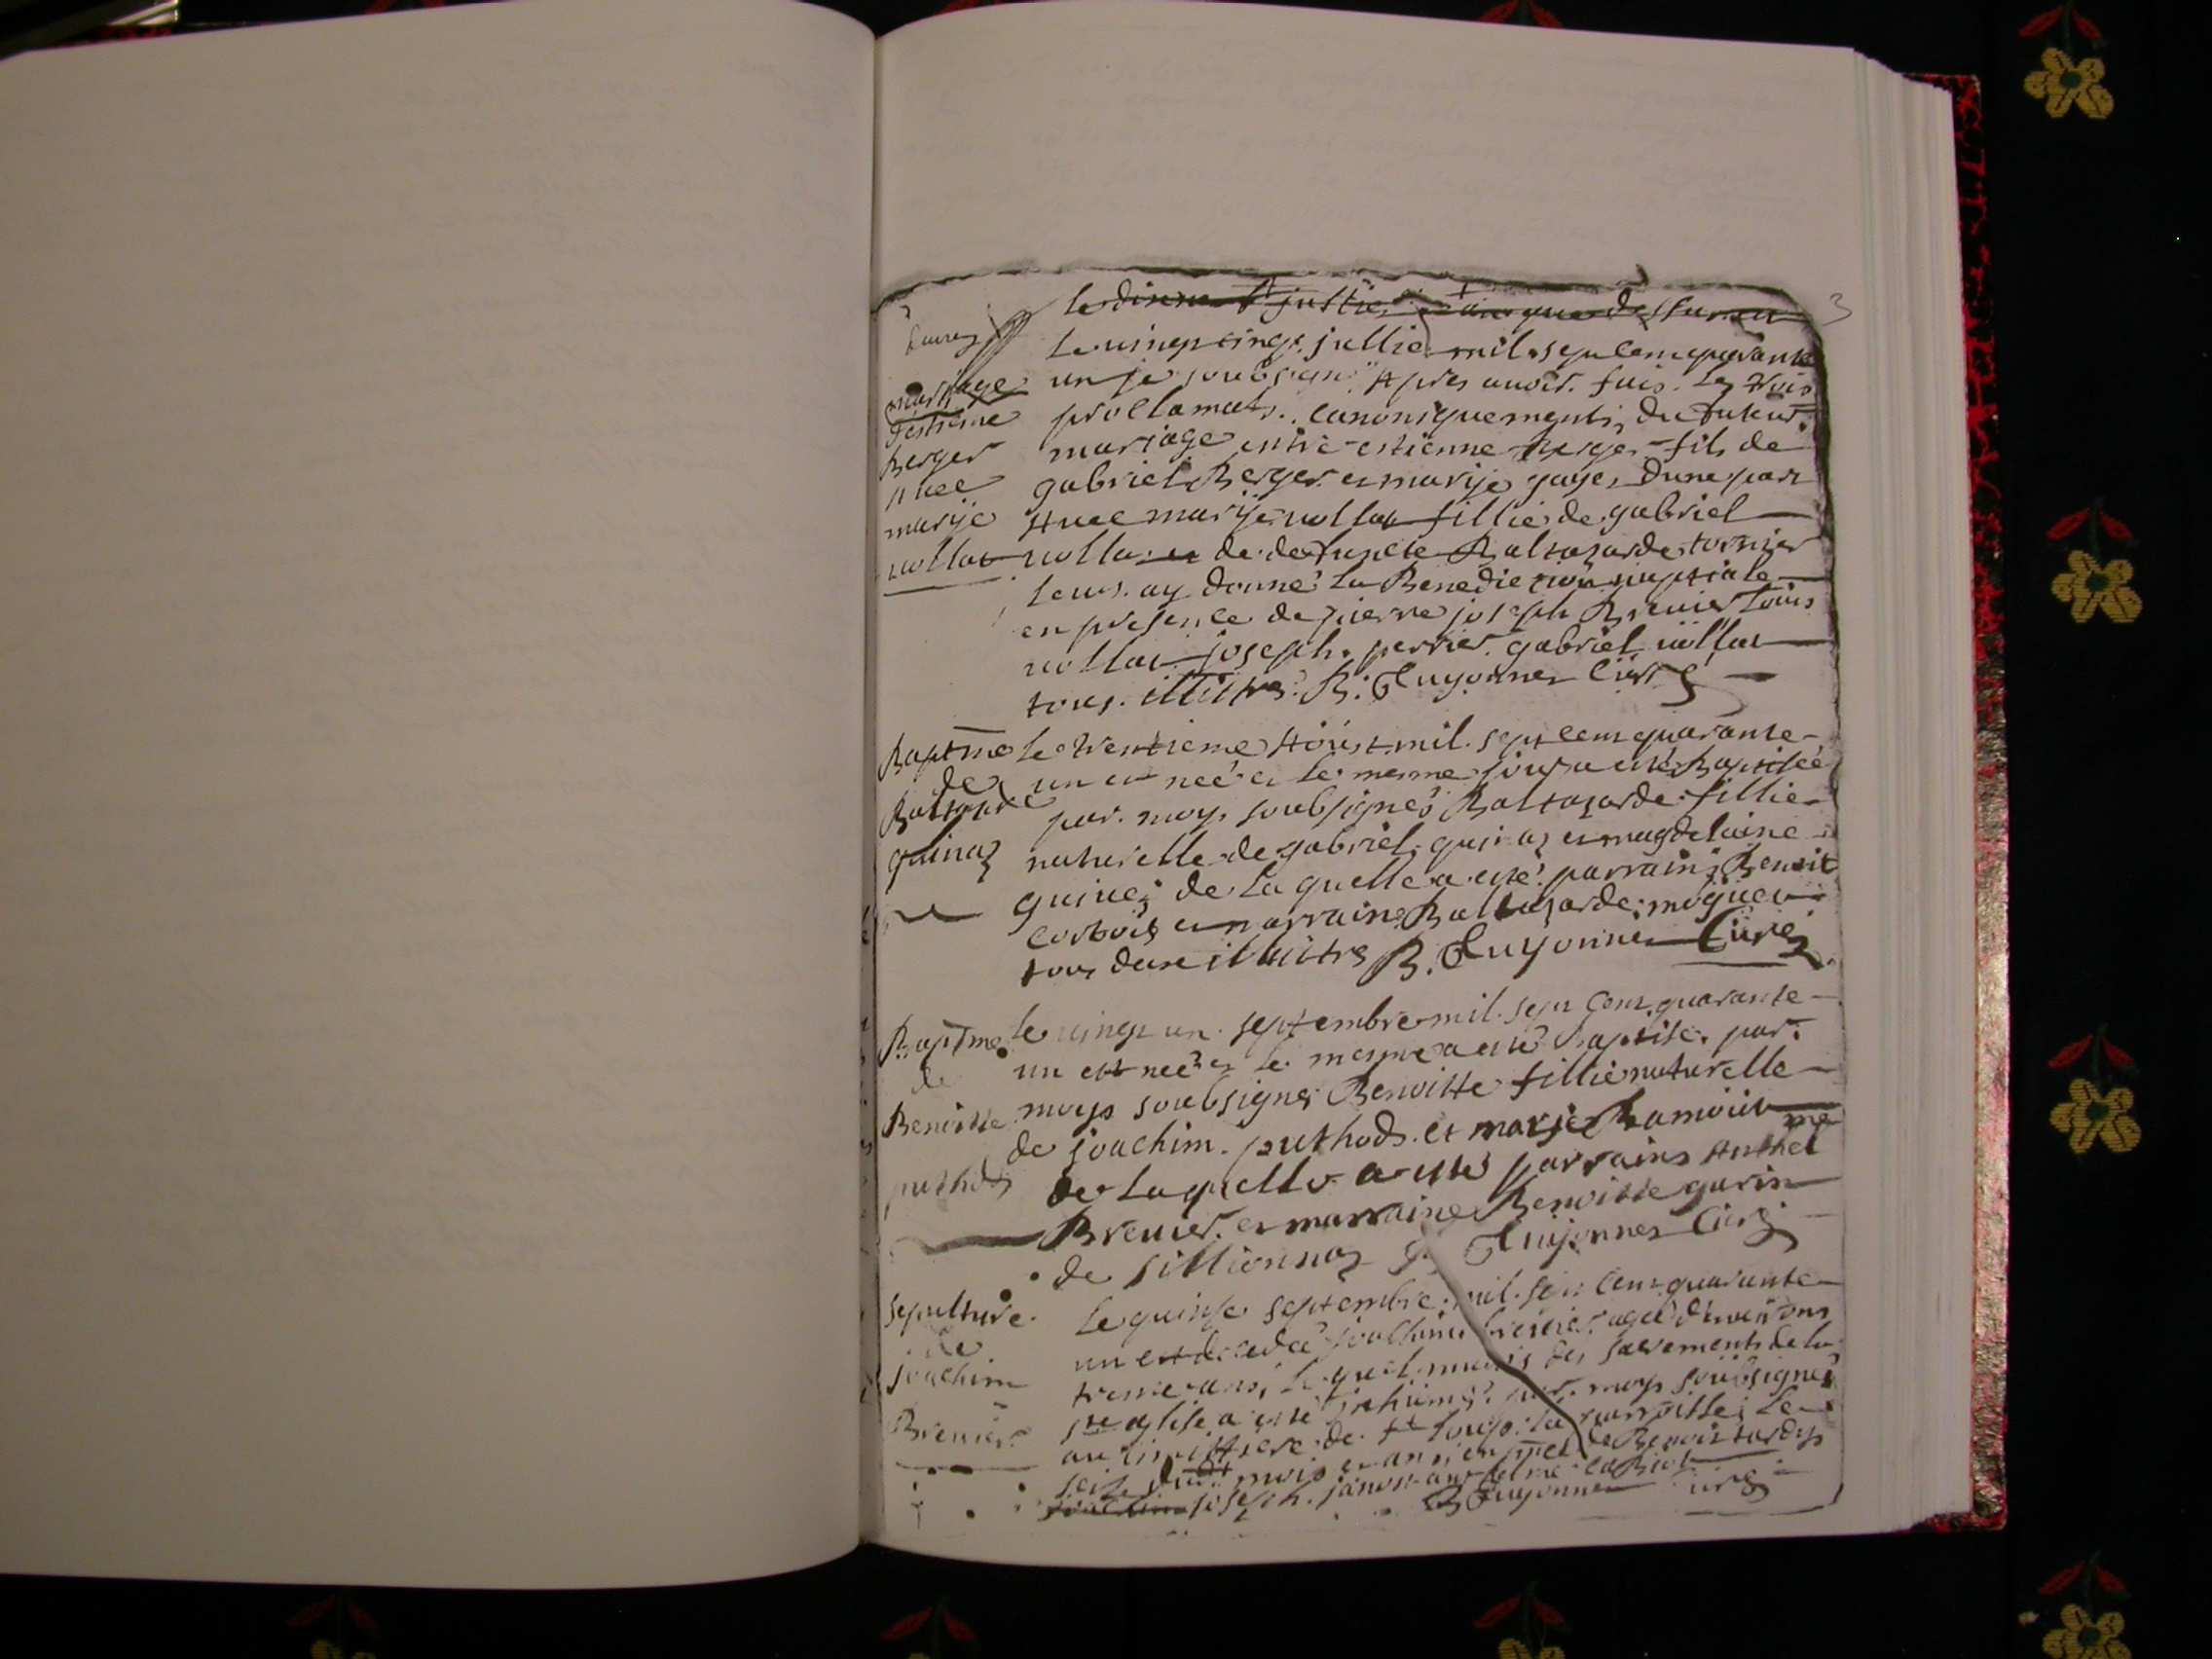 3
mariage
d'estienne
Berger
avec
marije
vollat
Le vingt cinq juillie mil sept cent quarante
un je soubsigné Apres avoir fais les trois
proclamats canoniquements du futeur
mariage entre estienne Berger fils de
gabriel Berger et marije gayet dune part
Avec marije vollat fillie de gabriel
vollat et de defuncte Baltazarde tornier
Leur ay donné la Benediction nuptiale
en presence de pierre joseph Brevier Louis
vollat joseph perrier gabriel vollat
tous illitrés B. Guyonnet Curé
Baptme
de
Baltazarde
guinaz
Le trentieme Aoust mil sept cent quarante
un est neé et le mesme jour a esté Baptiseé
par moy soubsigné Baltazarde fillie
naturelle de gabriel guinaz et magdelaine
guinet de Laquelle a esté parrain Benoit
corbois et marraine Baltazarde
tous deux illitrés B. Guyonnet Curé
Baptme
de
Benoitte
puthod
le vingt un septembre mil sept cent quarante
un est neé et le mesme a esté Baptisé par
moy soubsigné Benoitte fillie naturelle
de joachim puthod et marie
de Laquelle a esté parrains Anthel
me
Brevier et marraine Benoitte gurin
de sillionnaz Guyonnet Curé
sepulture
de
joachim
Brevier
Le quinse septembre mil sept cent quarante
un est decedé joachim Brevier agé d'environs
trense ans, lequel munis des sacrements de la
ste eglise a esté inhumé par moy soubsigné
au cimittiere de la parroisse le
seise dudt mois et an, en pnce de Benoit tardy
joseph janot
B Guyonnet Curé